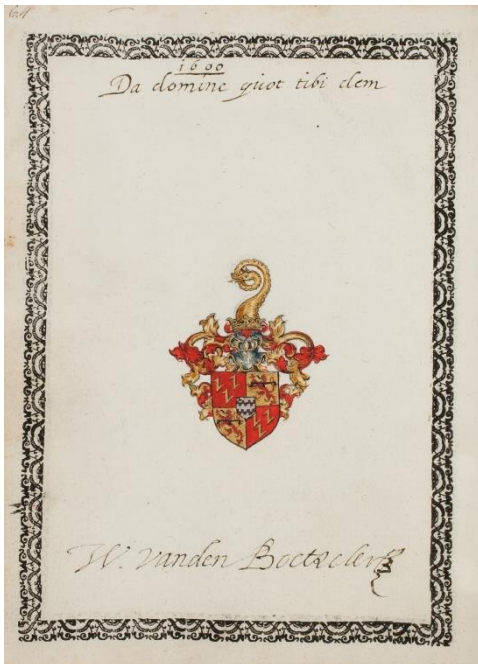 64
1600
Da domine quot tibi dem
W. vanden Boetzeler